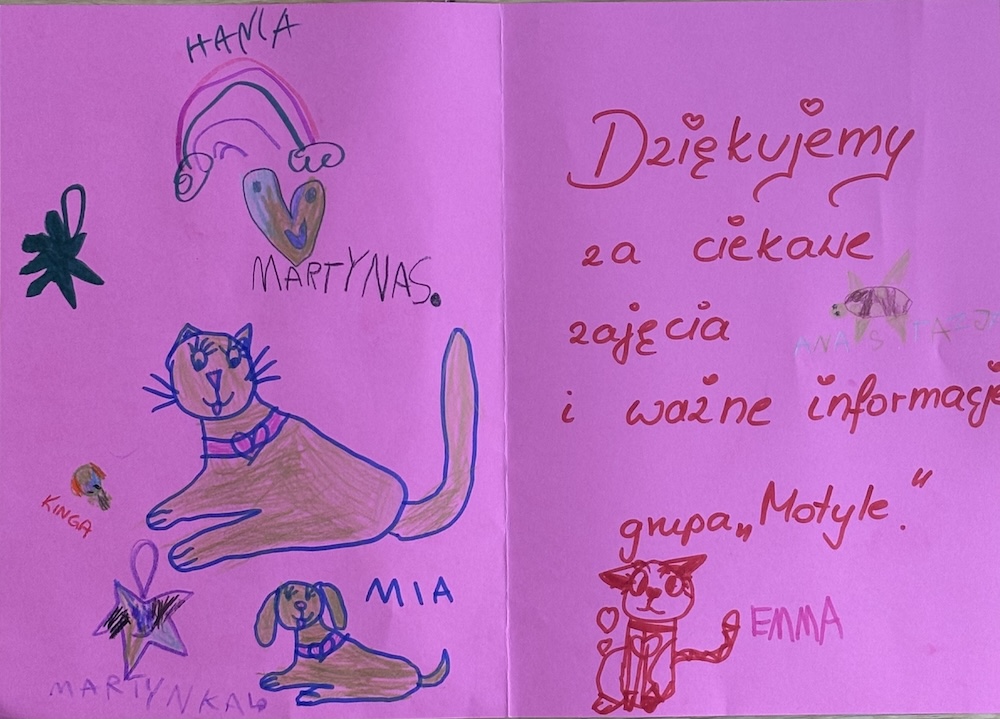 HANIA
MARTYNAS.
KINGA
MIA
MARTYNKA
Dziękujemy
za ciekawe
zajęcia
ANASTAZJA
i ważne informacje
grupa „Motyle."
EMMA